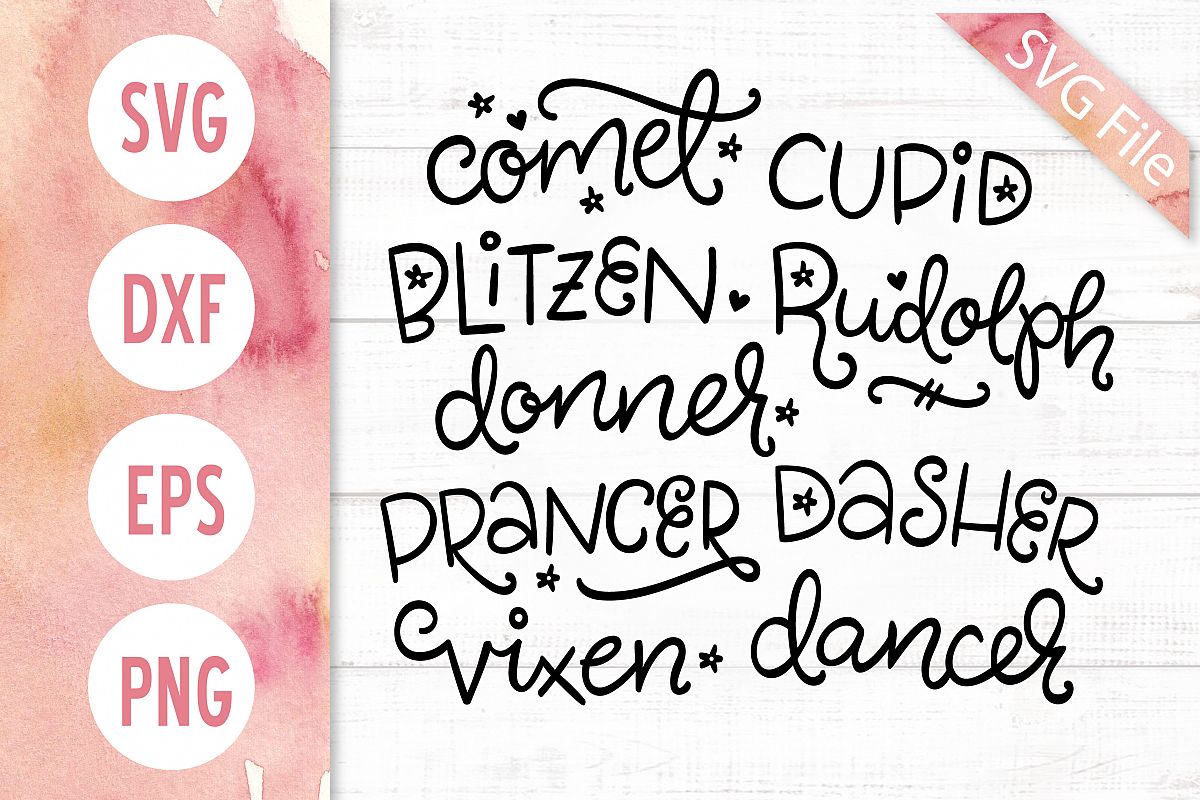 SVG
DXF
EPS
PNG
SVG File
comet CUPiD
BLiTZEN Rudolph
donner
PRaNCER DaSHER
vixen dancer